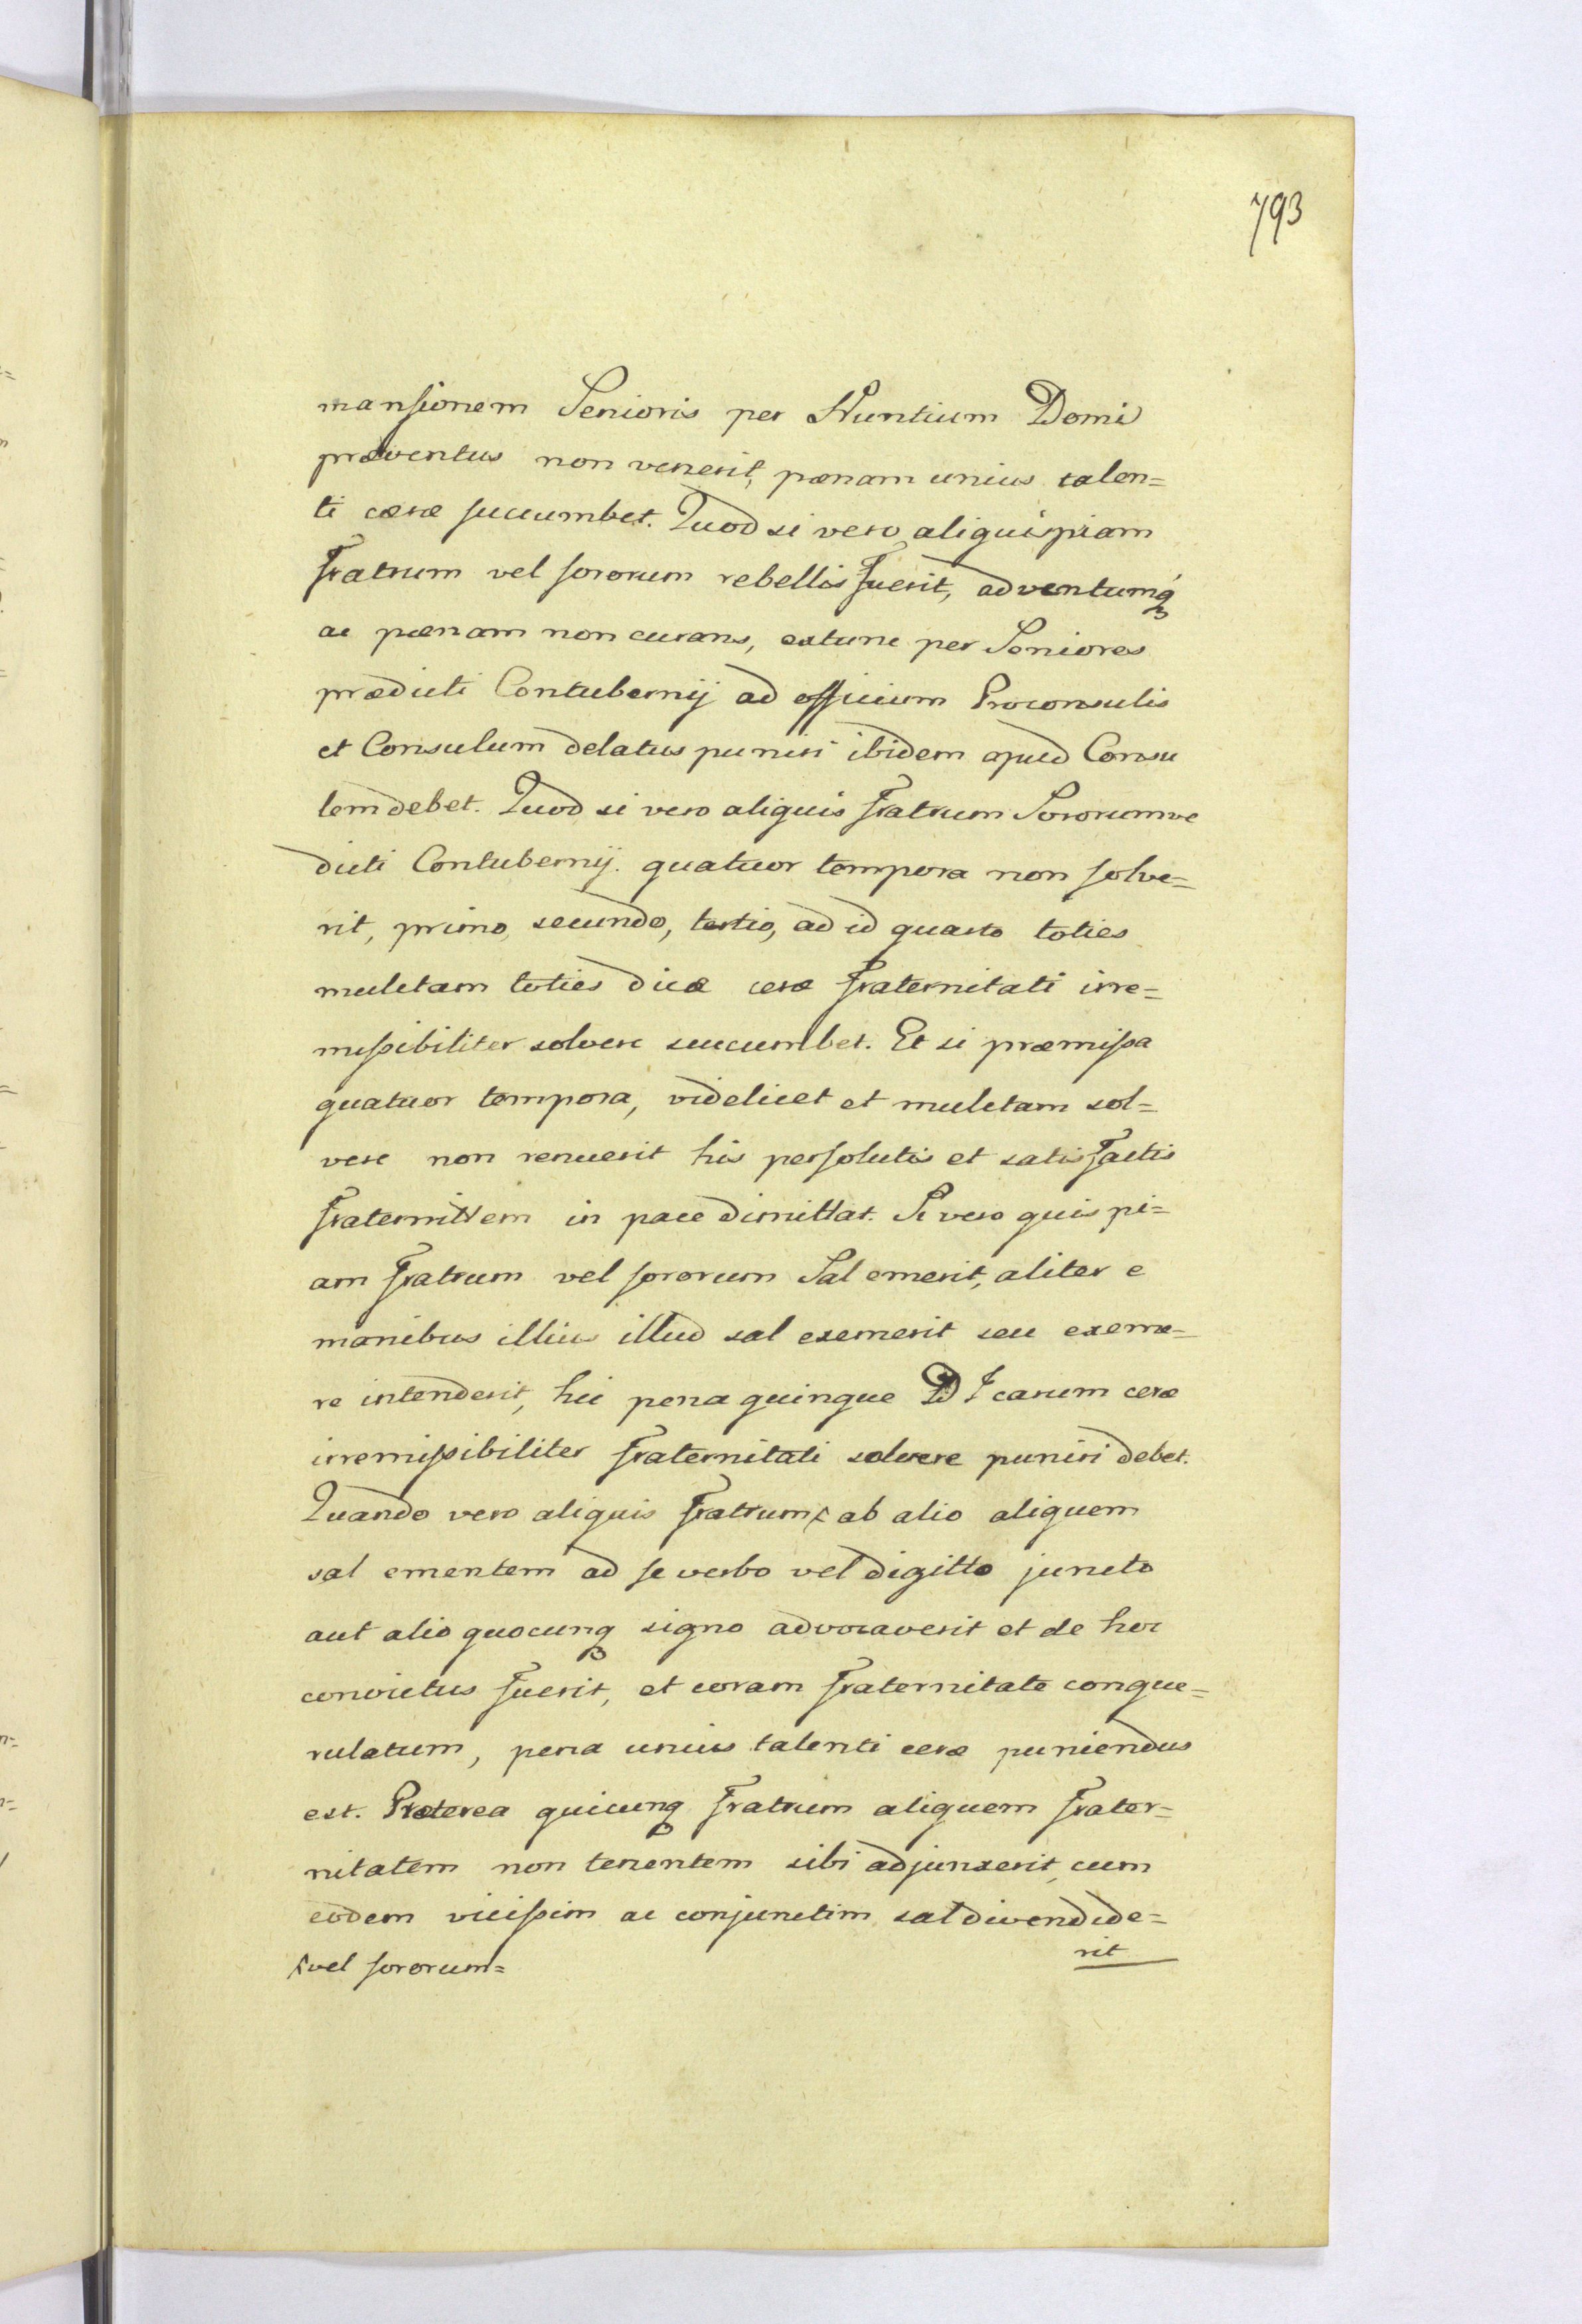 793
mansionem Senioris per Nuntium Domi
præventus non venerit, pœnam unius talen=
ti cæræ succumbet. Quod si vero aliquispiam
Fratrum vel sororum rebellis fuerit, adventumq́
ac pœnam non curans, extunc per Seniores
prædicti Contubernij ad officium Proconsulis
et Consulum delatus puniri ibidem apud Consu
lem debet. Quod si vero aliquis Fratrum Sororumve
dicti Contubernij. quatuor tempora non solve=
rit, primo, secundo, tertio, ad id quarto toties
mulctam toties dicæ ceræ Fraternitati irre=
missibiliter solvere succumbet. Et si præmissa
quatuor tempora, videlicet et mulctam sol=
vere non renuerit his persolutis et satisfactis
Fraternittem in pace dimittat. Si vero quispi=
am Fratrum vel sororum Sal emerit, aliter e
manibus illius illud sal exemerit seu exeme=
re intenderit, hic pena quinque D I carum ceræ
irremissibiliter Fraternitati solvere puniri debet.
Quando vero aliquis Fratrum x ab alio aliquem
sal ementem ad se verbo vel digitto juncto
aut alio quocunq signo advocaverit et de hoc
convictus fuerit, et coram Fraternitate conque=
rulatum, pena unius talenti ceræ puniendus
est. Præterea quicunq Fratrum aliquem Frater=
nitatem non tenentem sibi adjunxerit, cum
eodem vicissim ac conjunctim sal divendide=
rit
x vel sororum=